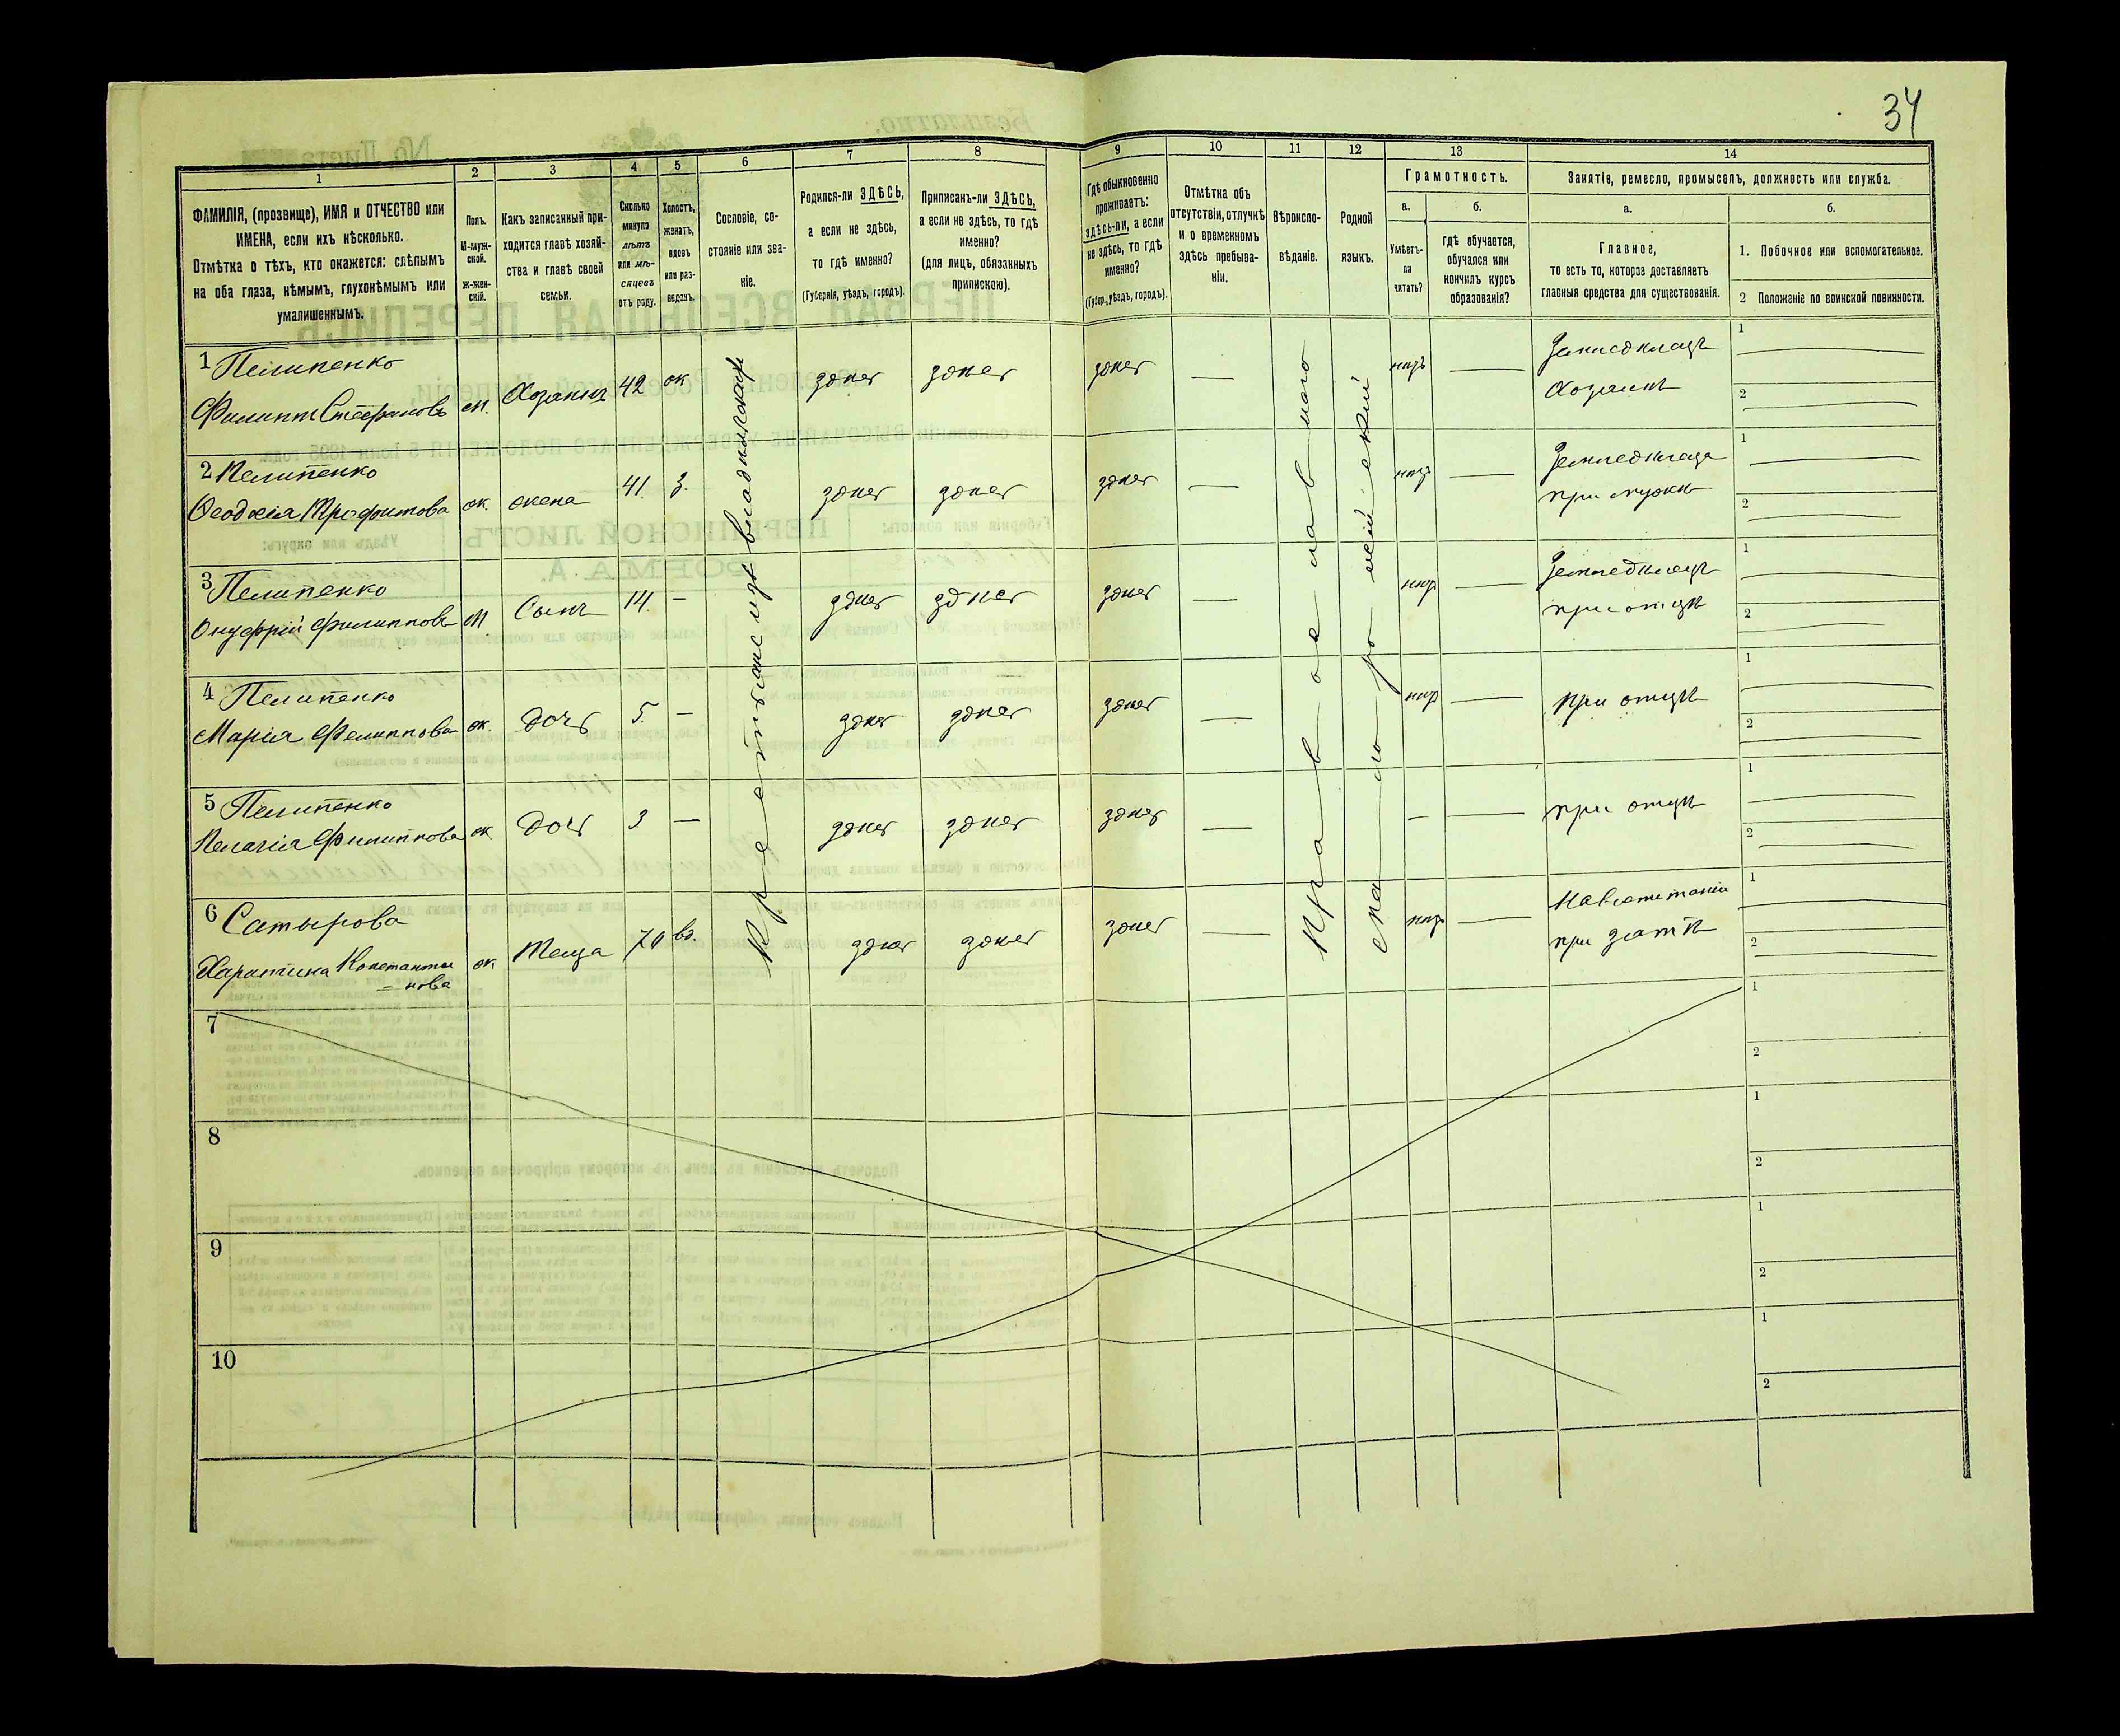 34
1
2
3
4
5
6
7
8
9
10
11
12
13
14
ФАМИЛІЯ, (прозвище), ИМЯ и ОТЧЕСТВО или
ИМЕНА, если ихъ нѣсколько.
Отмѣтка о тѣхъ, кто окажется: слѣпымъ
на оба глаза, нѣмымъ, глухонѣмымъ или
умалишеннымъ.
Полъ.
М-муж-
ской.
Ж-жен-
скій.
Какъ записанный при-
ходится главѣ хозяй-
ства и главѣ своей
семьи.
Сколько
минуло
лѣтъ
или мѣ-
сяцевъ
отъ роду.
Холостъ,
женатъ,
вдовъ
или раз-
веденъ.
Сословіе, со-
стояніе или зва-
ніе.
Родился-ли ЗДѢСЬ,
а если не здѣсь,
то гдѣ именно?
(Губернія, уѣздъ, городъ).
Приписанъ-ли ЗДѢСЬ,
а если не здѣсь, то гдѣ
именно?
(для лицъ, обязанныхъ
припискою).
Гдѣ обыкновенно
проживаетъ:
здѣсь-ли, а если
не здѣсь, то гдѣ
именно?
(Губер., уѣздъ, городъ).
Отмѣтка объ
отсутствіи, отлучкѣ
и о временномъ
здѣсь пребыва-
ніи.
Вѣроиспо-
вѣданіе.
Родной
языкъ.
Грамотность.
а.
Умѣетъ-
ли
читать?
б.
гдѣ обучается,
обучался или
кончилъ курсъ
образованія?
Занятіе, ремесло, промыселъ, должность или служба.
а.
Главное,
то есть то, которое доставляетъ
главныя средства для существованія.
б.
1. Побочное или вспомогательное.
2 Положеніе по воинской повинности.
1 Пелипенко
Филиппъ Стефановъ м. Хозяинъ 42 ж здѣсь здѣсь здѣсь — нѣтъ — Земледѣлецъ
Хозяинъ
1
2
2 Пелипенко
Ѳеодосія Трофимова ж. жена 41. з. здѣсь здѣсь здѣсь — нѣтъ — Земледѣлецъ
при мужѣ
1
2
3 Пелипенко
Онуфрій Филипповъ м Сынъ 14. — здѣсь здѣсь здѣсь — нѣтъ — Земледѣлецъ
при отцѣ
1
2
4 Пелипенко
Марія Филиппова ж. Дочь 5. — здѣсь здѣсь здѣсь — нѣтъ — при отцѣ
1
2
5 Пелипенко
Пелагія Филиппова ж. Дочь 3 — здѣсь здѣсь здѣсь — — — при отцѣ
1
2
6 Сатырова
Харитина Константи
= нова ж. Теща 70 вд. здѣсь здѣсь здѣсь — нѣтъ —
при зятѣ
1
2
Православнаго
Малороссійскій
7
1
2
8
1
2
9
1
2
10
1
2